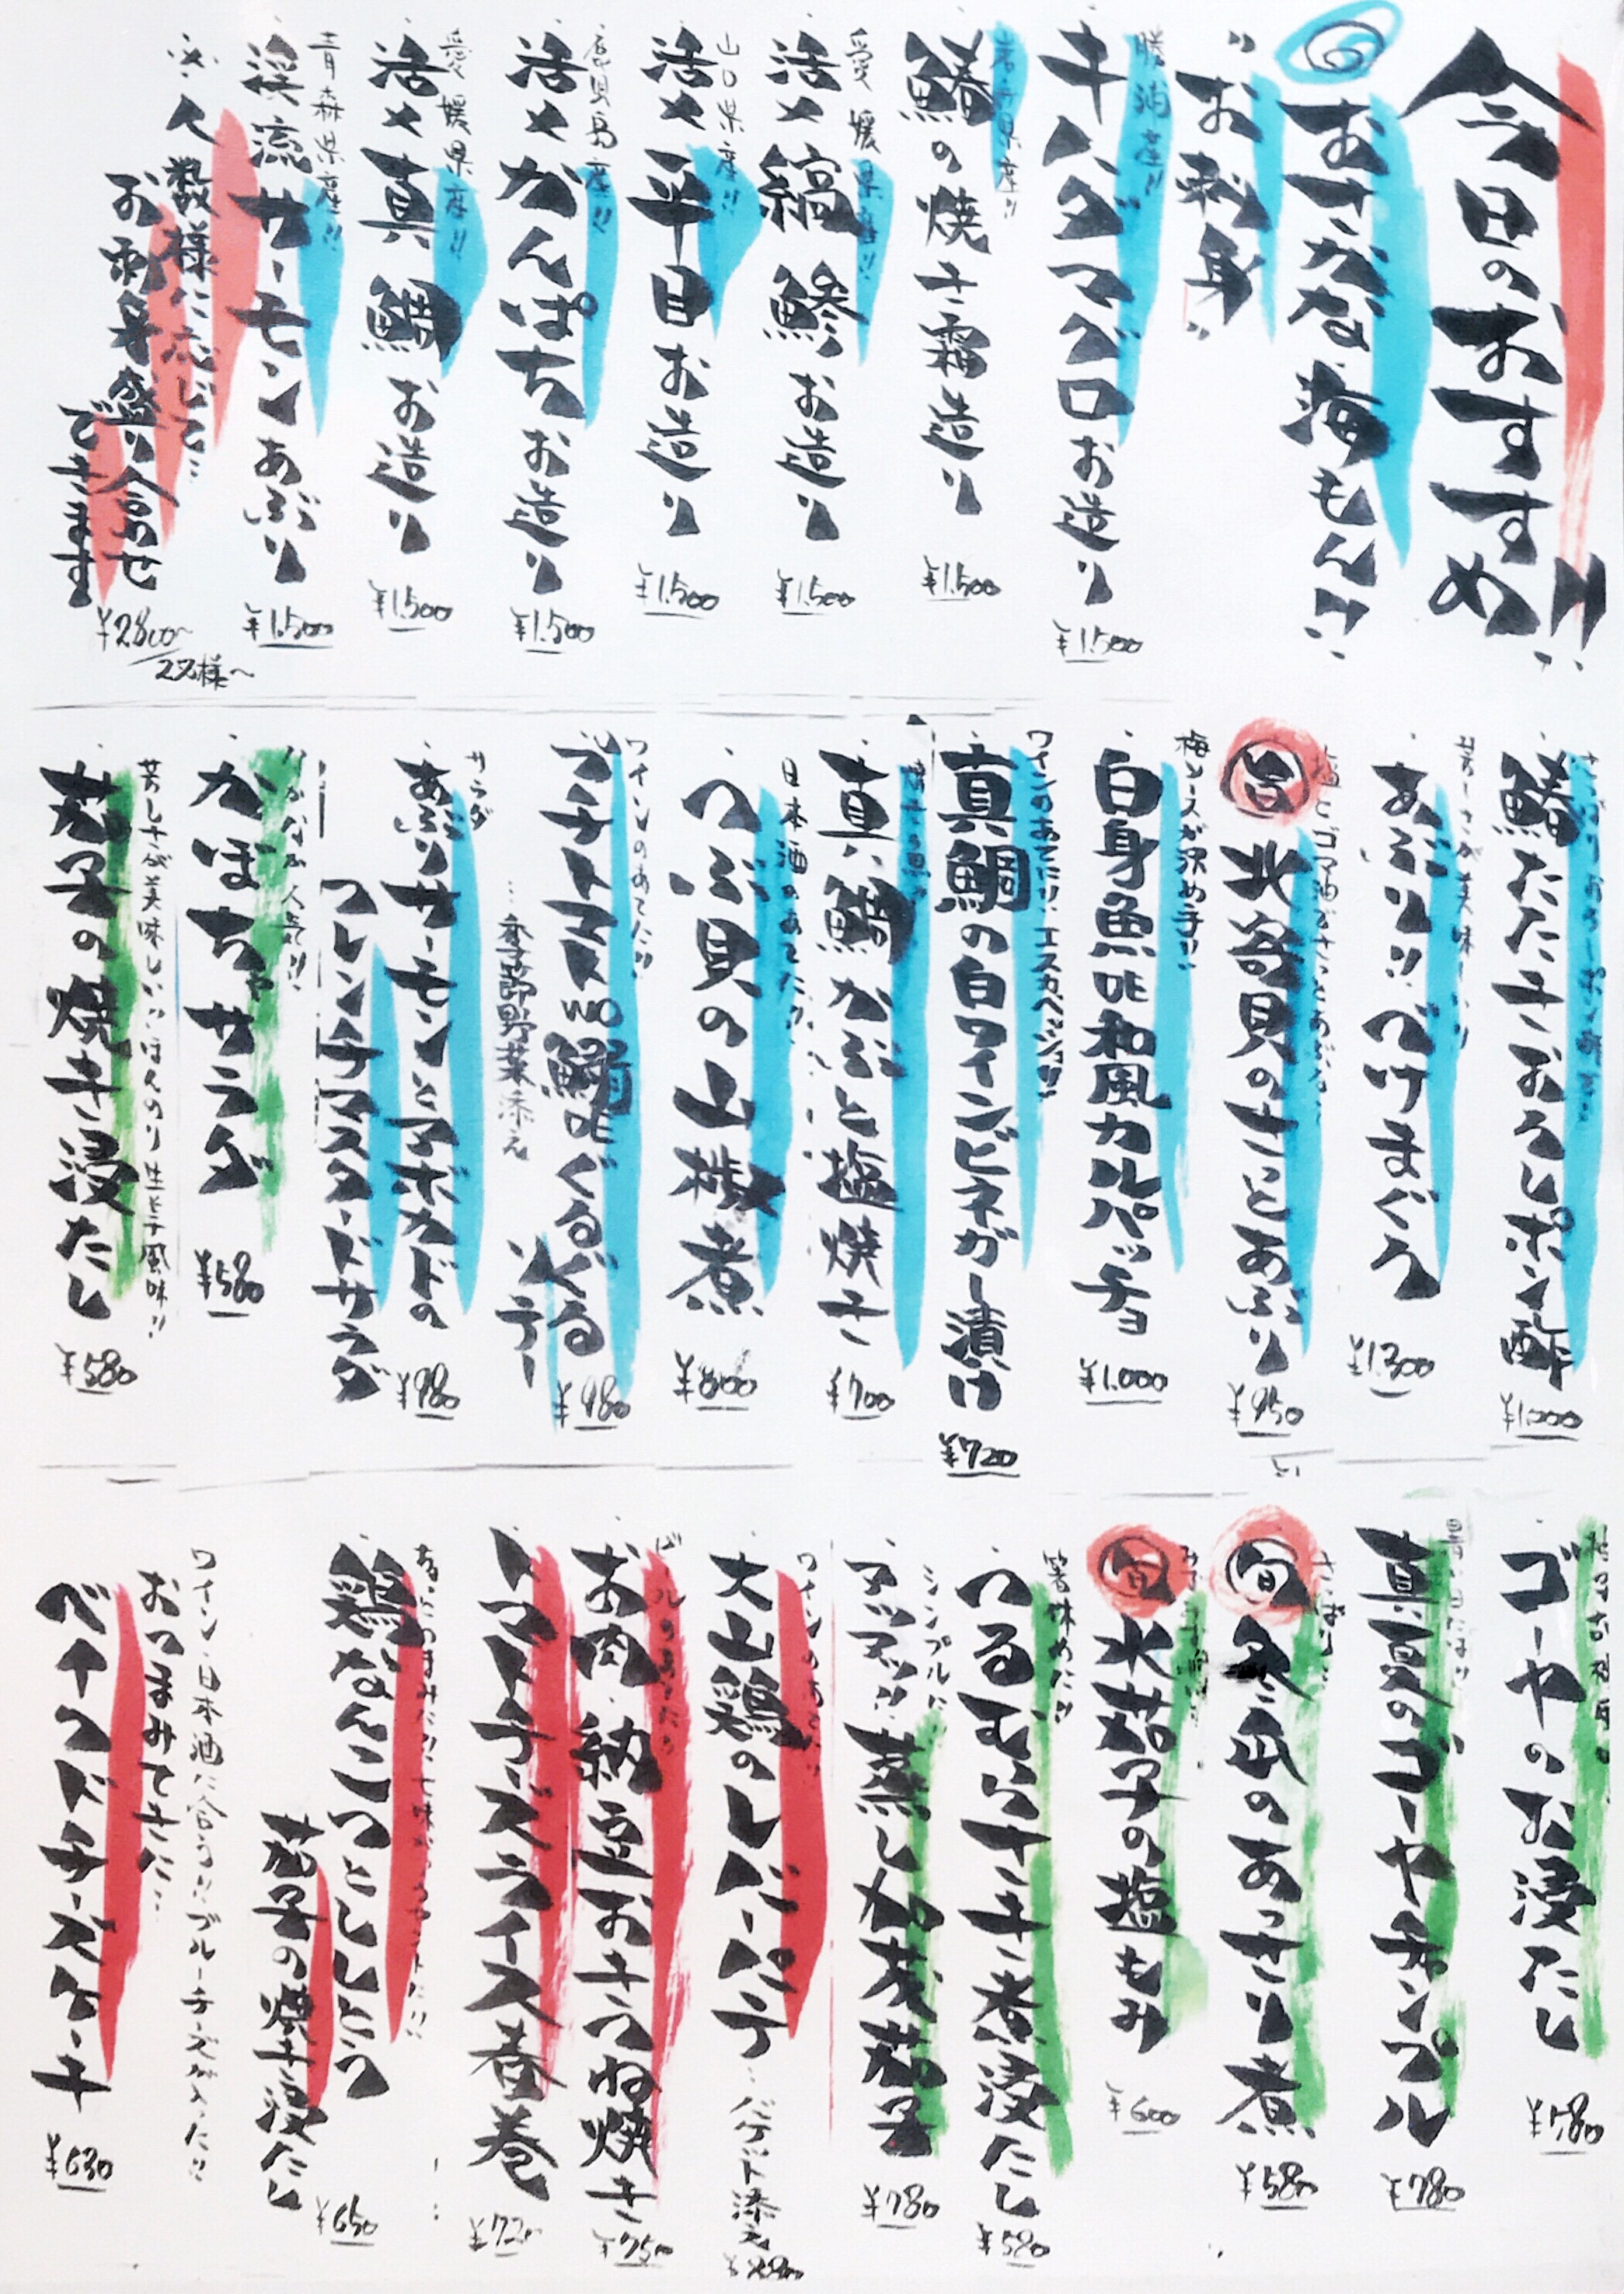 今日のおすすめ!!
おさかな海もん!!
"お刺身"
勝浦産!!
キハダマグロお造り
¥1.500
鰆の焼き霜造り
¥1.500
愛媛県産!!
活〆縞鯵お造り
¥1.500
山口県産!!
活〆平目お造り
¥1.500
鹿児島産!!
活〆かんぱちお造り
¥1.500
愛媛県産!!
活〆真鯛お造り
¥1.500
青森県産!!
渓流サーモンあぶり
¥1.500
※人数様に応じて…
お刺身盛り合わせ
できます
¥2800~
2名様~
鰆たたきおろしポン酢
¥1.000
あぶり!!づけまぐろ
¥1.300
旨
北寄貝のさっとあぶり
¥950
梅ソースが決め手!!
白身魚DE和風カルパッチョ
¥1.000
ワインのあてに!!エスカベッシュ!!
真鯛の白ワインビネガー漬け
¥720
真鯛かぶと塩焼き
¥700
日本酒のあてに!!
つぶ貝の山椒煮
¥800
ワインのあてに!!
プチトマトWO鰯DEぐるぐる
ソテー
…季節野菜添え
¥980
サラダ
あぶりサーモンとアボカドの
フレンチマスタードサラダ
¥980
なかなか人気!!
かぼちゃサラダ
¥580
茄子の焼き浸たし
¥580
ゴーヤのお浸たし
¥580
真夏のゴーヤチャンプル
¥780
旬
冬瓜のあっさり煮
¥580
旬
水茄子の塩もみ
¥600
箸休めに!!
つるむらさき煮浸たし
¥580
シンプルに!!
アツアツ!!蒸し加茂茄子
¥780
大山鶏のレバーパテ…バゲット添え
お肉・納豆おきつね焼き
¥750
トマトチーズライス春巻
¥720
鶏なんこつとししとう
茄子の焼き浸たし
¥650
ワイン・日本酒に合う!!ブルーチーズが入った!!
おつまみできた…
ベイクドチーズケーキ
¥630